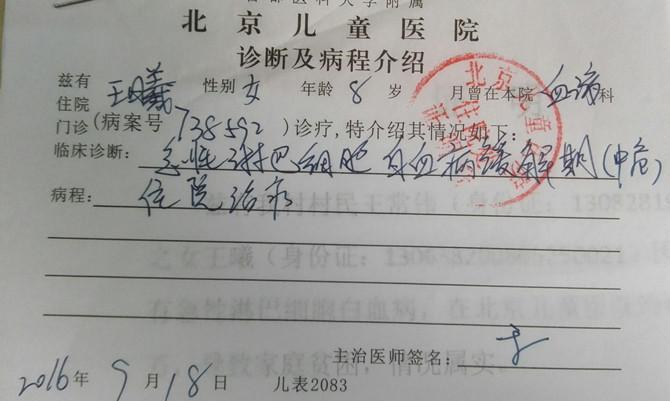 首都医科大学附属
北京儿童医院
诊断及病程介绍
兹有 王曦 性别 女 年龄 8 岁 月曾在本院 血病 科
住院
门诊(病案号 738592 )诊疗,特介绍其情况如下:
临床诊断: 急性淋巴细胞白血病缓解期(中危)
病程: 住院治疗
主治医师签名:
2016年 9月18日 儿表2083
北京儿童医院
村村民王常伟(身份证:13082819
之女王曦(身份证:
有急性淋巴细胞白血病,在北京儿童
导致家庭贫困,情况属实。